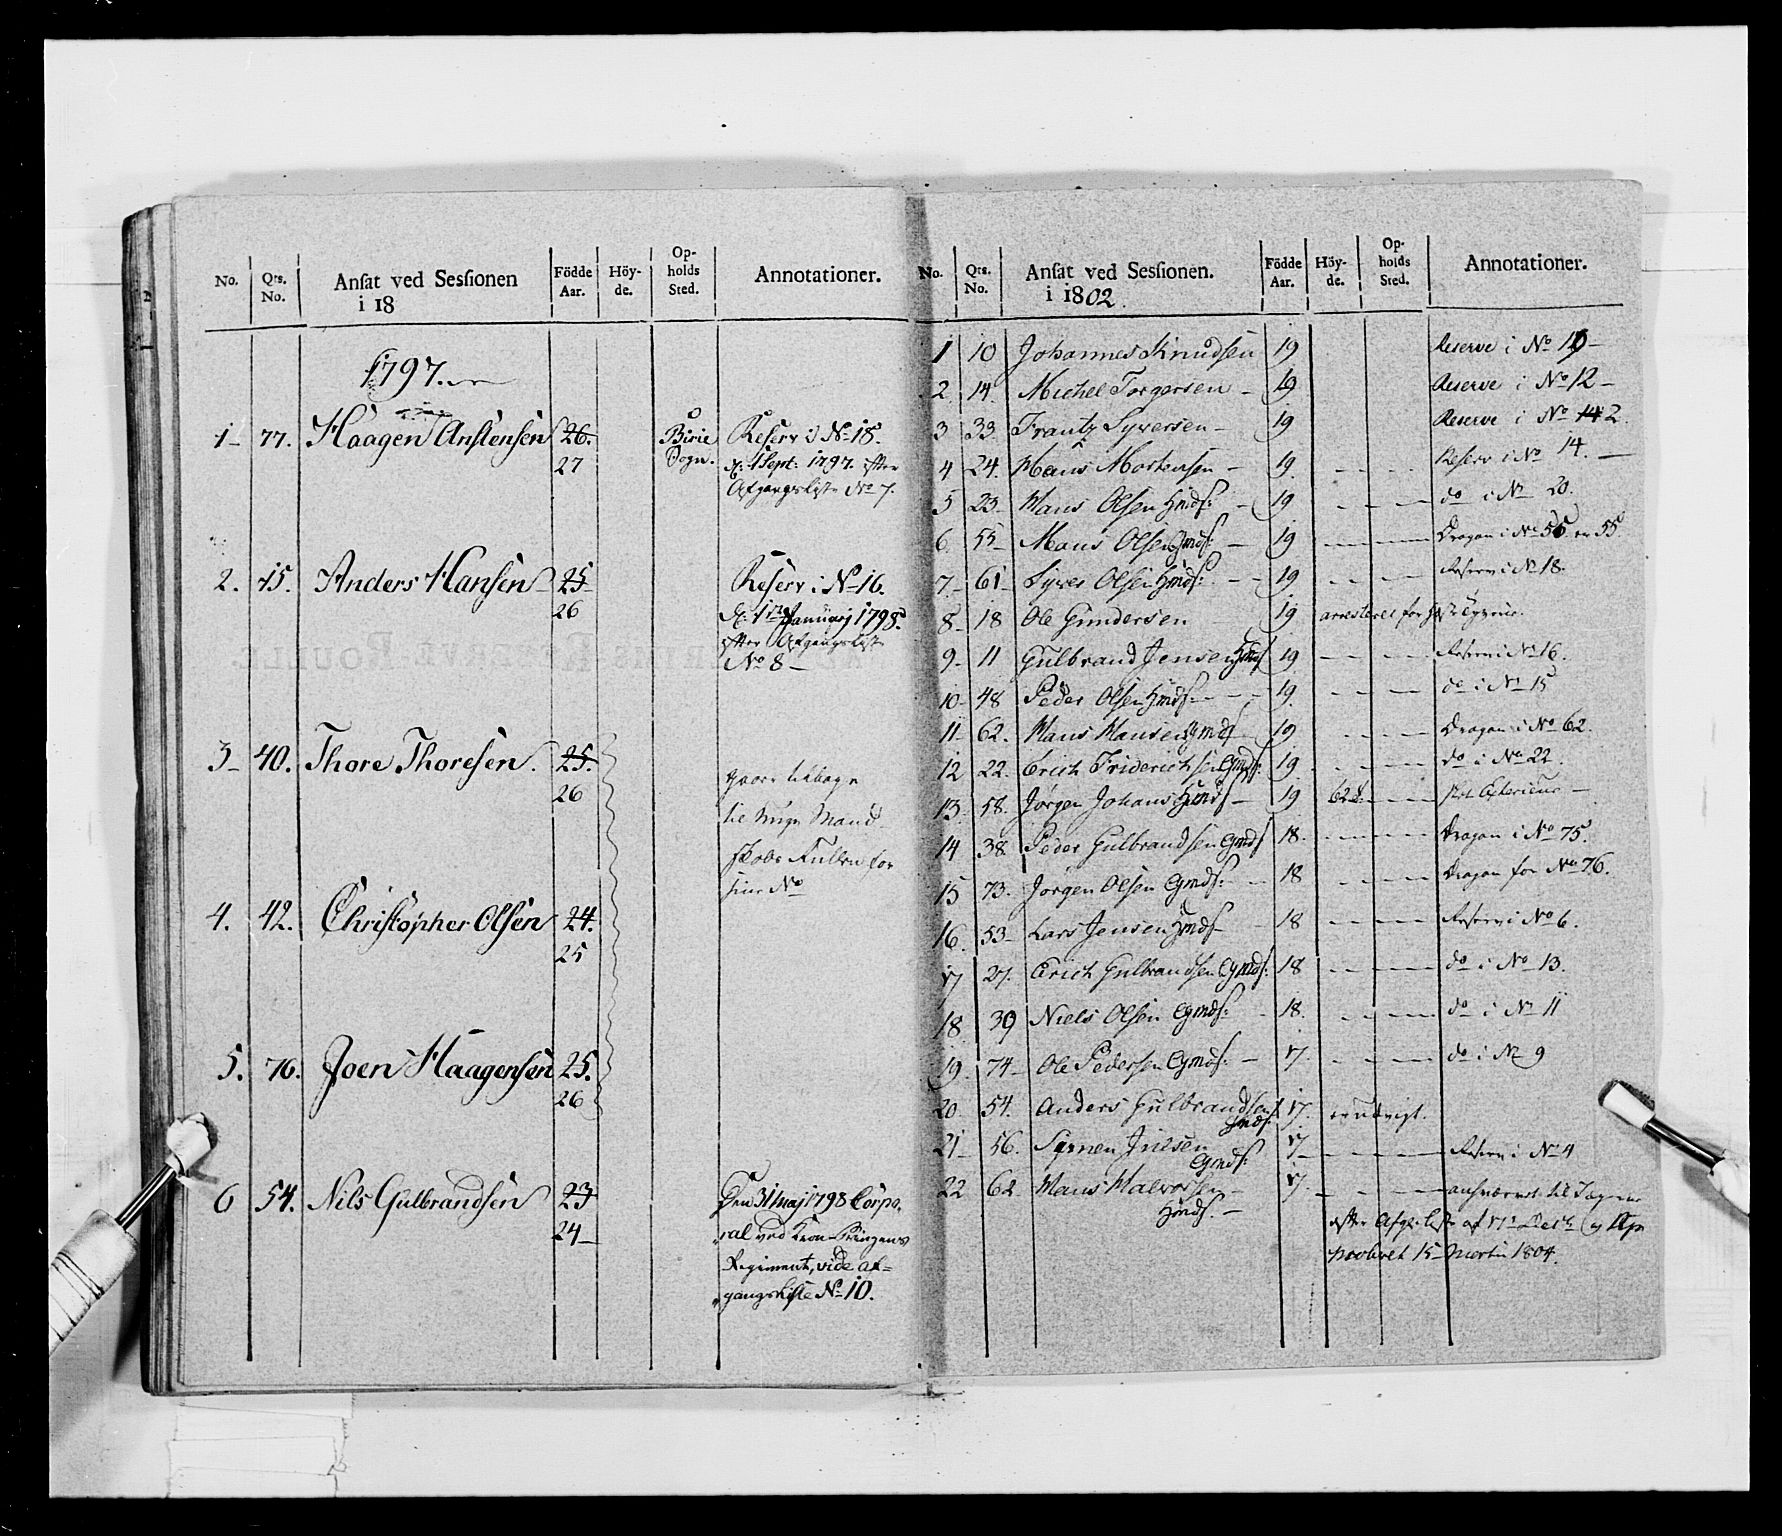 No. Qrs. No. Ansat ved Sessionen i 18 Födde Aar. Höyde. Opholds Sted. Annotationer.
1797.
1 77. Haagen Anstensen 26. Birie Reserv i No 18.
27 Sogn. d: 1 Sept: 1797. efter
Afgangsliste No 7.
2. 15. Anders Hansen 25 Reserv i No 16.
26 Januarj 1798.
efter Afgangsliste
No 8
3 40. Thore Thoresen. 25.
26 Mand
for
sine No
4. 42. Christopher Olsen 24.
25
5. 76. Joen Haagensen 25.
26
6 54. Nils Gulbrandsen 23 Den 31 Maj 1798 Corpo-
24 ral ved Kron-Prinzens
Regiment, vide af-
gangsliste No 10.
No. Qrs. No. Ansat ved Sessionen. i 1802. Födde Aar. Höyde. Opholds Sted. Annotationer.
1 10 Johannes Knudsen 19 Reserve i No 10
2 14. Michel Torgersen 19 Reserve i No 12
3 33 Frantz Syversen 19 Reserve i No 14 2.
4 24. Hans Mortensen 19 Reserv i No 14.
5 23. Hans Olsen Hmds: 19 do i No 20.
6. 55 Hans Olsen Gmds: 19 Dragon i No 55
7 61 Syver Olsen Hmds: 19 Reserv i No 18.
8 18 Ole Gundersen 19 arresteret for
9 11 Gulbrand Jensen Hmds 19 Reserv i No 16.
10 48 Peder Olsen Hmds: 19. do i No 15
11 62. Hans Hansen Gmds 19 Dragon i No 62.
12 22. Erich Friderichsen Gmds: 19 do i No 22.
13 58. Jørgen Johans Hmds 19 62
14 38. Peder Gulbrandsen Gmds 18. Dragon i No 75.
15 73. Jørgen Olsen Gmds: 18 Dragon for No 76.
16. 53 Lars Jensen Hmds 18 Reserv i No 6.
17 27. Erich Gulbrandsen Gmds: 18 do i No 13.
18 39 Niels Olsen Gmds: 18. do i No 11
19 74 Ole Pedersen Gmds: 17. do i No 9
20. 54. Anders Gulbrandsen 17.
Gmds:
21 56. 17 Reserv i No 4
Gmds:
22 62 Hans Halvorsen 17. til
Hmds. efter Afg: liste af
15 Martii 1804.